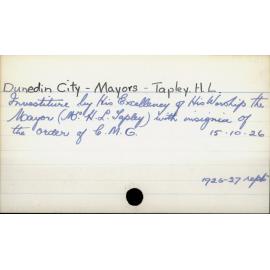 Dunedin City - Mayors - Tapley. H.L.
Investiture by His Excellency of His Worship the
Mayor (Mr H.L. Tapley) with insignia of
the order of C.M.G. 15-10-26
1926-27 rept